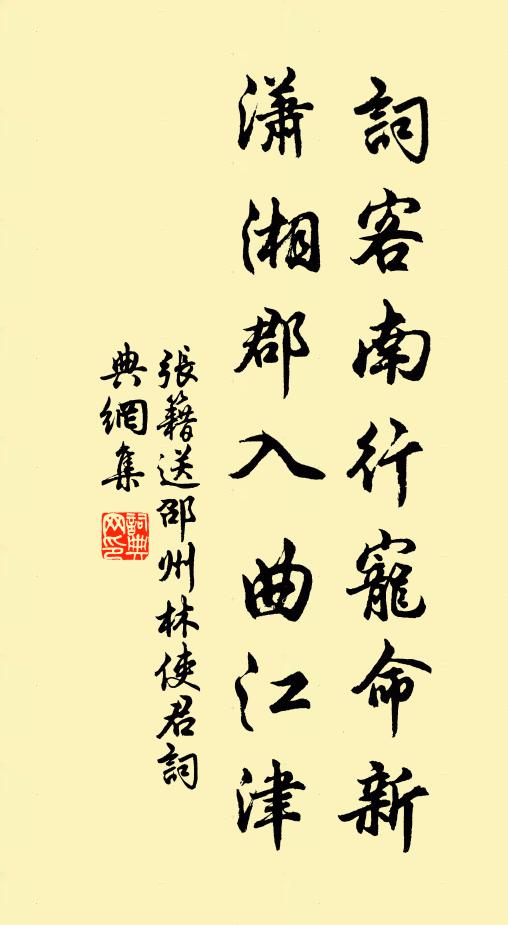 詞客南行寵命新
瀟湘郡入曲江津
張籍送邵州林使君詞
典網集
詞典
网印